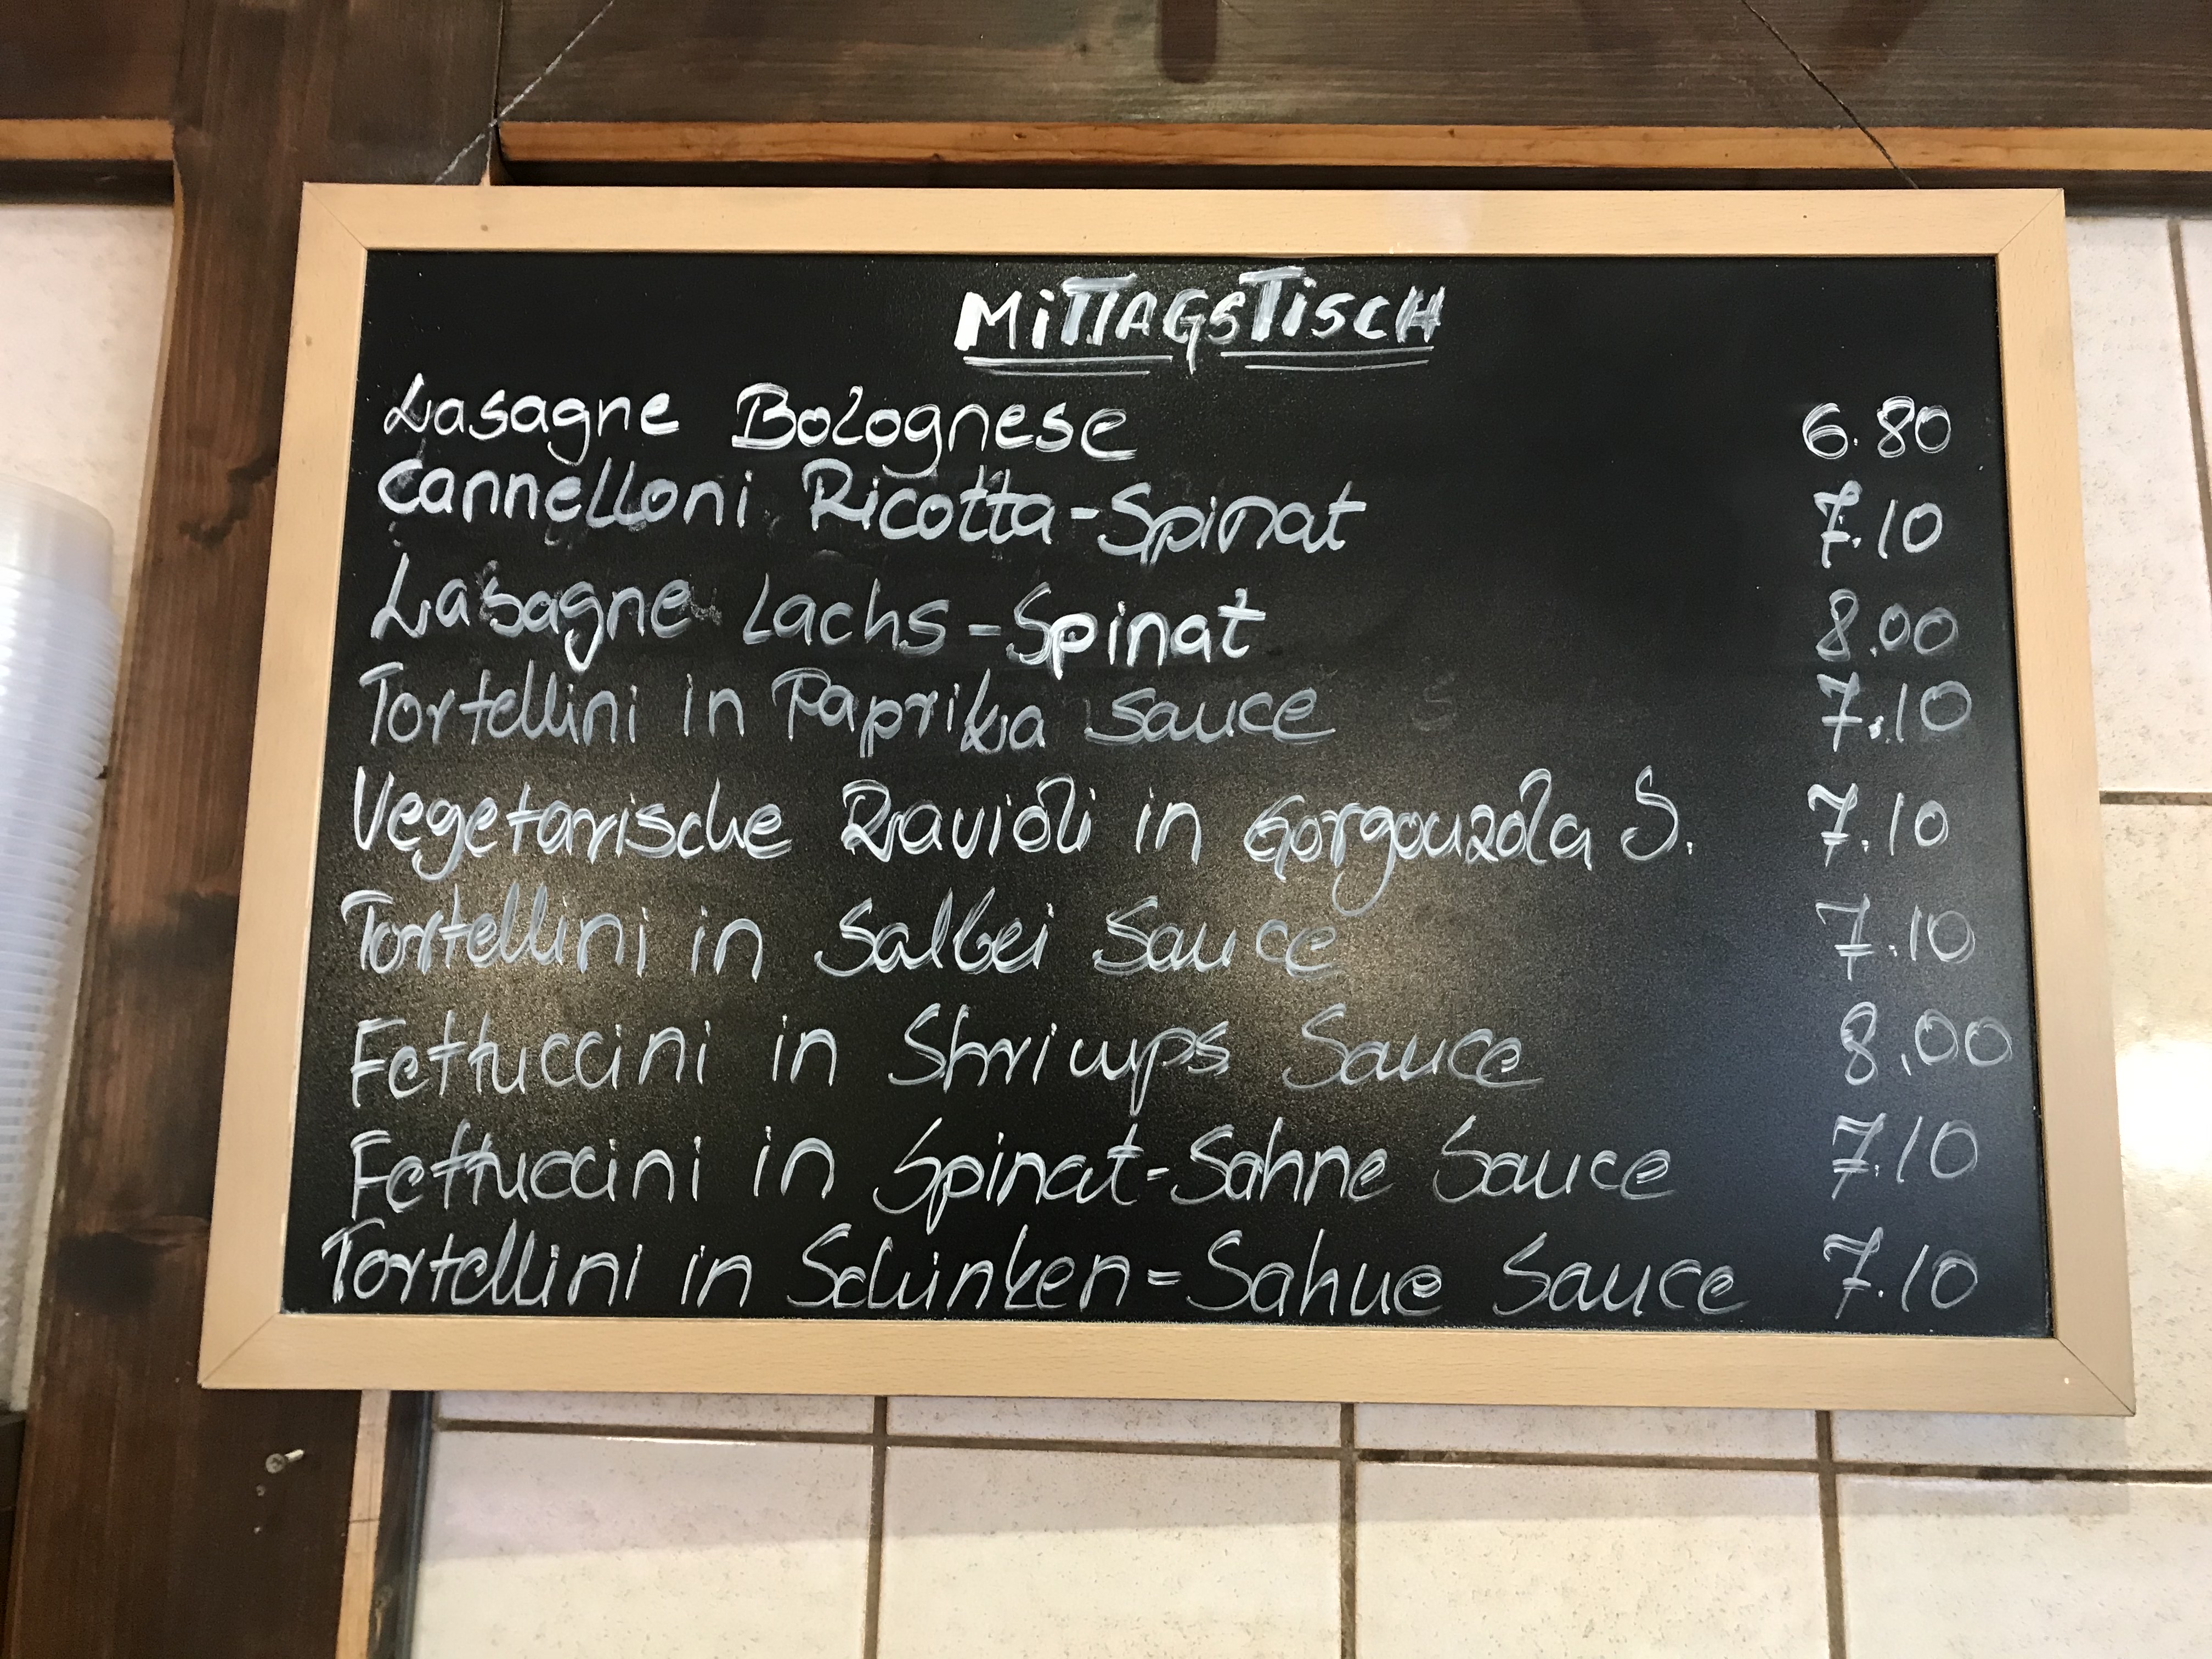 MiTTAGSTiSCH
Lasagne Bolognese 6.80
Cannelloni Ricotta-Spinat 7.10
Lasagne Lachs-Spinat 8.00
Tortellini in Paprika Sauce 7.10
Vegetarische Ravioli in Gorgonzola S. 7.10
Tortellini in Salbei Sauce 7.10
Fettuccini in Shrimps Sauce 8.00
Fettuccini in Spinat-Sahne Sauce 7.10
Tortellini in Schinken=Sahne Sauce 7.10